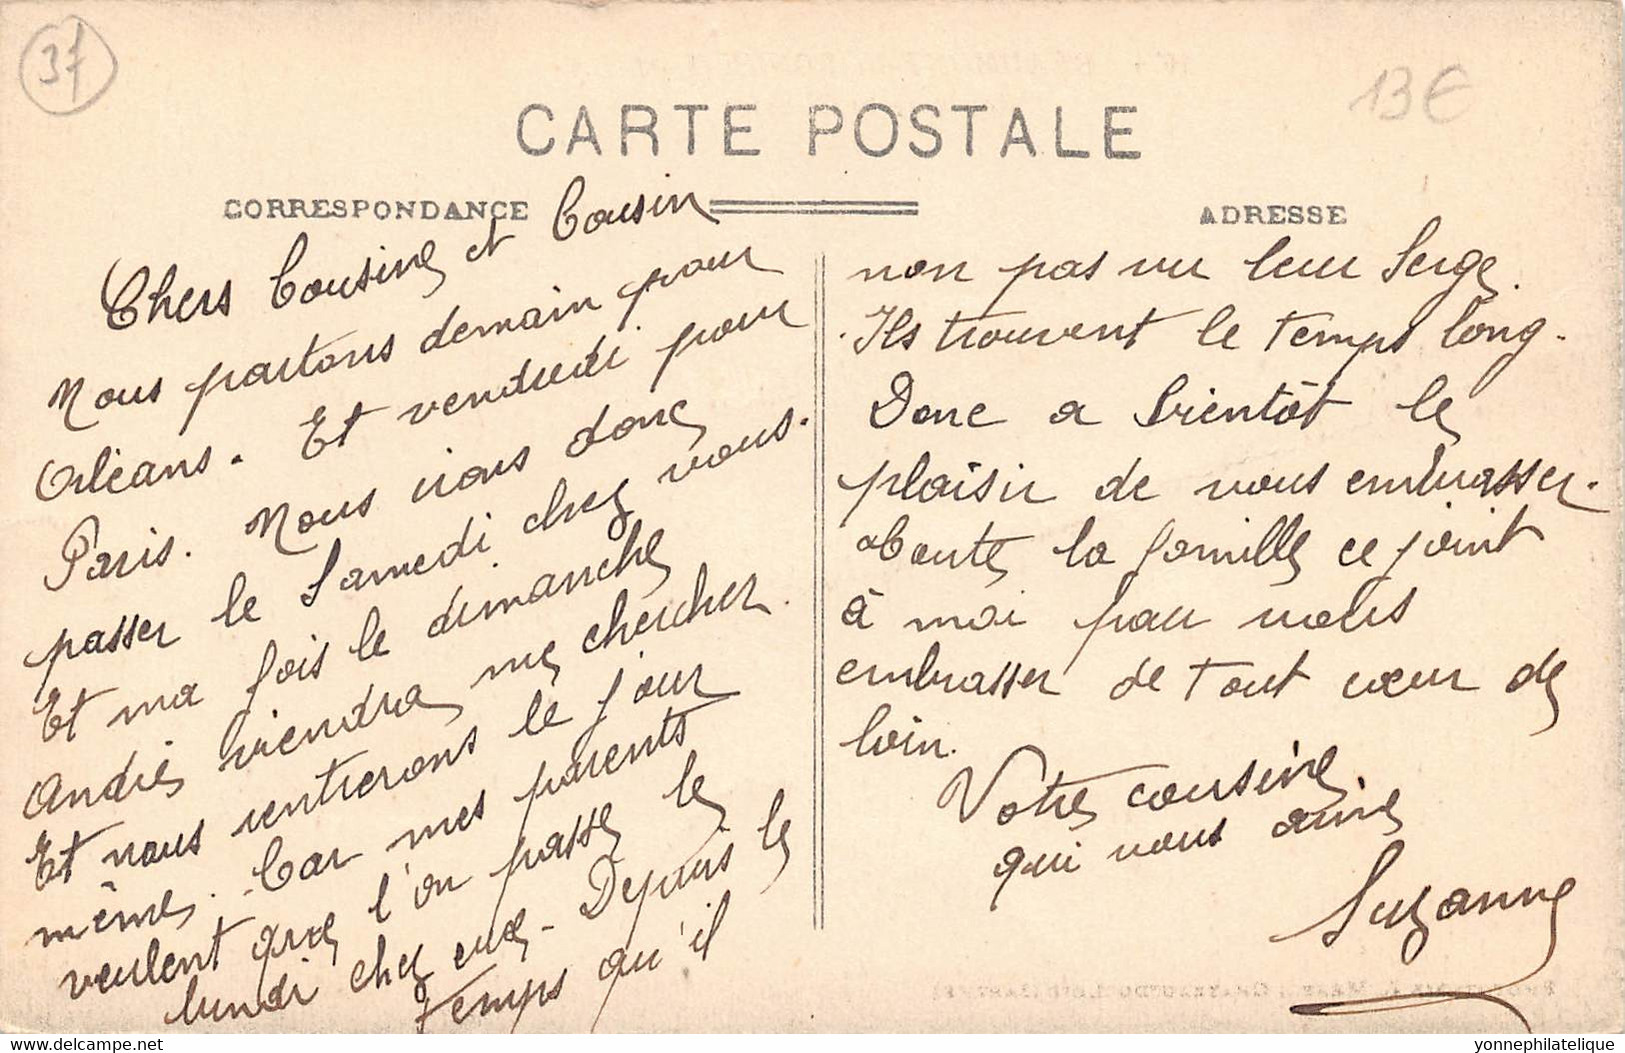 37
13€
CARTE POSTALE
CORRESPONDANCE
ADRESSE
Chers Cousine et Cousin
Nous partons demain pour
Orléans. Et vendredi pour
Paris. Nous irons donc
passer le Samedi chez vous.
Et ma fois le dimanche
André viendra me chercher.
Et nous rentrerons le jour
même. Car mes parents
veulent que l'on passe le
lundi chez eux. Depuis le
temps qu'il
non pas vu leur Serge.
Ils trouvent le temps long.
Donc a bientôt le
plaisir de vous embrasser.
toute la famille ce joint
à moi pour vous
embrasser de tout cœur de
loin.
Votre cousine
qui vous aime
Suzanne
delcampe.net
yonnephilatelique